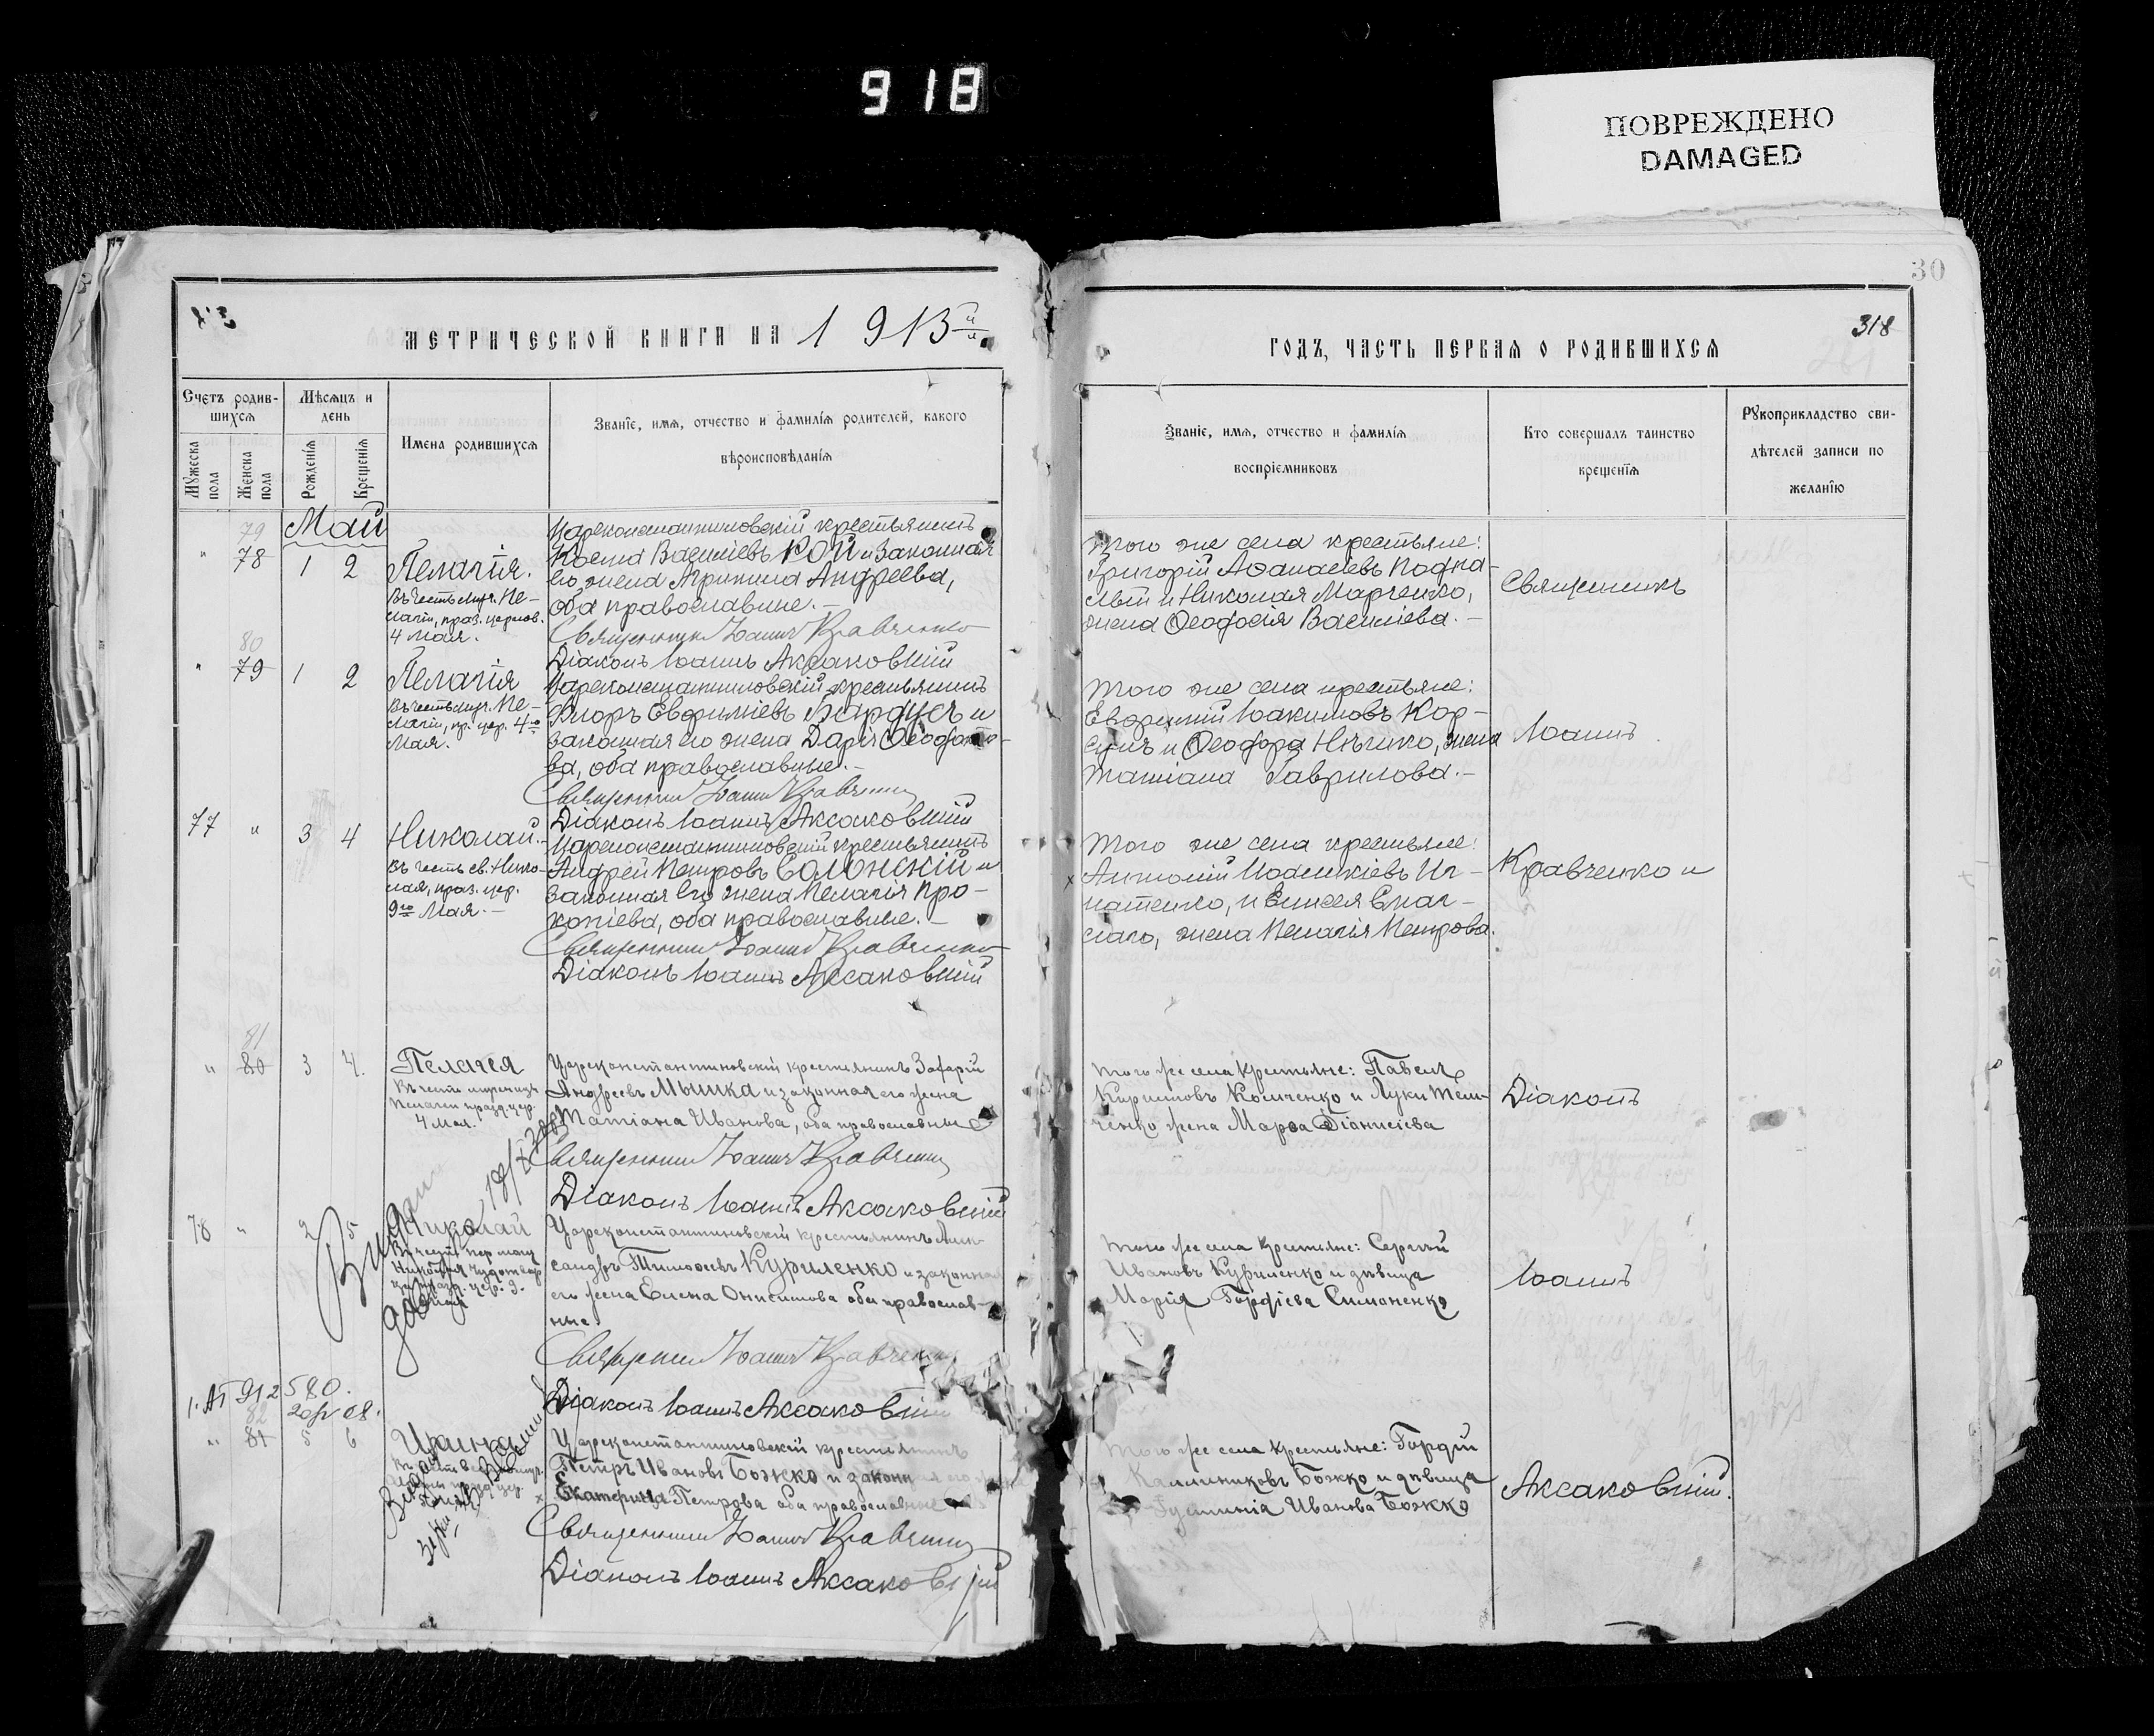 918
ПОВРЕЖДЕНО
DAMAGED
30
318
МЕТРИЧЕСКОЙ КНИГИ НА 1913й
ГОДЪ, ЧАСТЬ ПЕРВАЯ О РОДИВШИХСЯ
Счетъ родив-
шихся
Мужеска пола
Женска пола
Мѣсяцъ и
день
Рожденія
Крещенія
Имена родившихся
Званіе, имя, отчество и фамилія родителей, какого
вѣроисповѣданія
Званіе, имя, отчество и фамилія
воспріемниковъ
Кто совершалъ таинство
крещенія
Рукоприкладство сви-
дѣтелей записи по
желанію
Май
79
" 78 1 2
Пелагія.
Въ честь муч. Пе-
лагіи, праз. церков.
4 Мая.
Цареконстантиновскій крестьянинъ
Косма Василіевъ РОЙ и законная
его жена Агрипина Андреева,
оба православные.-
Священникъ Іоаннъ Кравченко
Діаконъ Іоаннъ Аксаковскій
Того же села крестьяне:
Григорій Аѳанасіевъ Подка-
и Николая Марченко,
жена Ѳеодосія Василіева.-
Священникъ
80
" 79 1 2
Пелагія
Въ честь муч. Пе-
лагіи, пр. цер. 4го
Мая.
Цареконстантиновскій крестьянинъ
Флоръ Евфиміевъ и
законная его жена Дарія
ва, оба православные.-
Священникъ Іоаннъ Кравченко
Діаконъ Іоаннъ Аксаковскій
Того же села крестьяне:
Евфимій Іоакимовъ Кор-
сунъ и Ѳеодора Нѣчико, жена
Татіана Гаврилова.-
Іоаннъ
77 " 3 4
Николай.
Въ честь св. Нико-
лая, праз. цер.
9го Мая.-
Цареконстантиновскій крестьянинъ
Андрей Петровъ Солонскій и
законная его жена Пелагія Про-
копіева, оба православные.-
Священникъ Іоаннъ Кравченко
Діаконъ Іоаннъ Аксаковскій
Того же села крестьяне:
Антоній Іоанникіевъ Иг-
натенко, и Елисея
жена Пелагія Петрова.
Кравченко и
81
" 80 3 4.
Пелагія
Въ честь мученицы
Пелагеи празд. цер.
4 Мая.
Цареконстантиновскій крестьянинъ Захарій
Андреевъ Мышка и законная его жена
Татіана Иванова, оба православные
Священникъ Іоаннъ Кравченко
Діаконъ Іоаннъ Аксаковскій
Того же села крестьяне: Павелъ
Кирилловъ Количенко и Луки Тели-
ченко жена Марѳа Діонисіева
Діаконъ
78 " 2 5
Николай
Въ честь
Николая чудотвор
празд. цер. 9.
Мая
Цареконстантиновскій крестьянинъ Алек-
сандръ Тимоѳеевъ Куриленко и законная
его жена Елена Онисимова оба православ-
ные.
Священникъ Іоаннъ Кравченко
Діаконъ Іоаннъ Аксаковскій
Того же села крестьяне: Сергѣй
Ивановъ Куриленко и дѣвица
Марія Гордіева Симоненко
Іоаннъ
82
" 81 5 6
Ирина
Цареконстантиновскій крестьянинъ
Петръ Ивановъ Божко и законн
Екатерина Петрова оба православные
Священникъ Іоаннъ Кравченко
Діаконъ Іоаннъ Аксаковскій
Того же села крестьяне: Гордѣй
Каллиниковъ Божко и дѣвица
Иванова Божко
Аксаковскій.